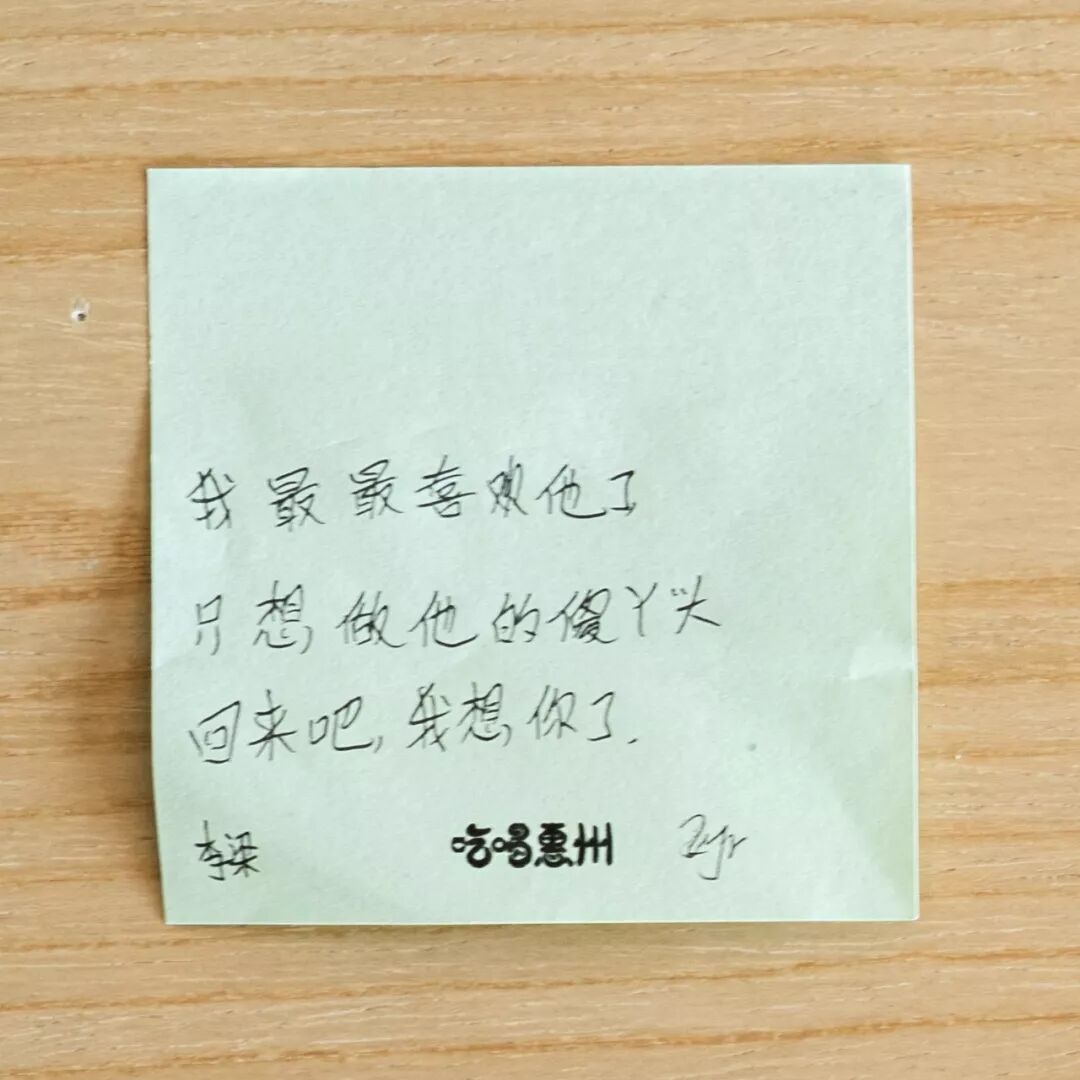 我最最喜欢他了
只想做他的傻丫头
回来吧,我想你了.
李梁 吃喝惠州